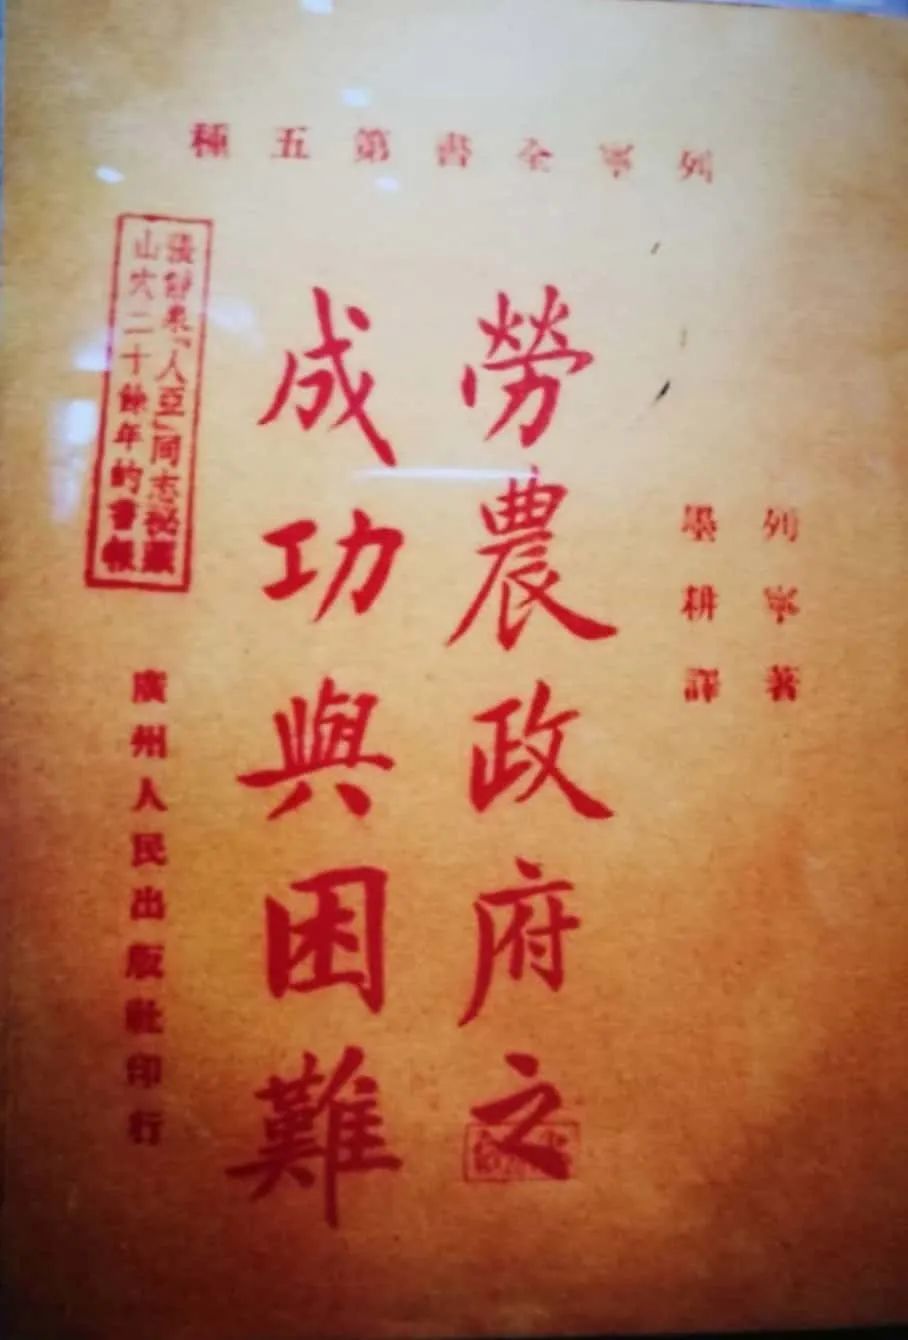 列寧全書第五種
列寧著
墨耕譯
勞農政府之
成功與困難
張靜泉「人亞」同志秘藏
山穴二十餘年的書報
廣州人民出版社印行